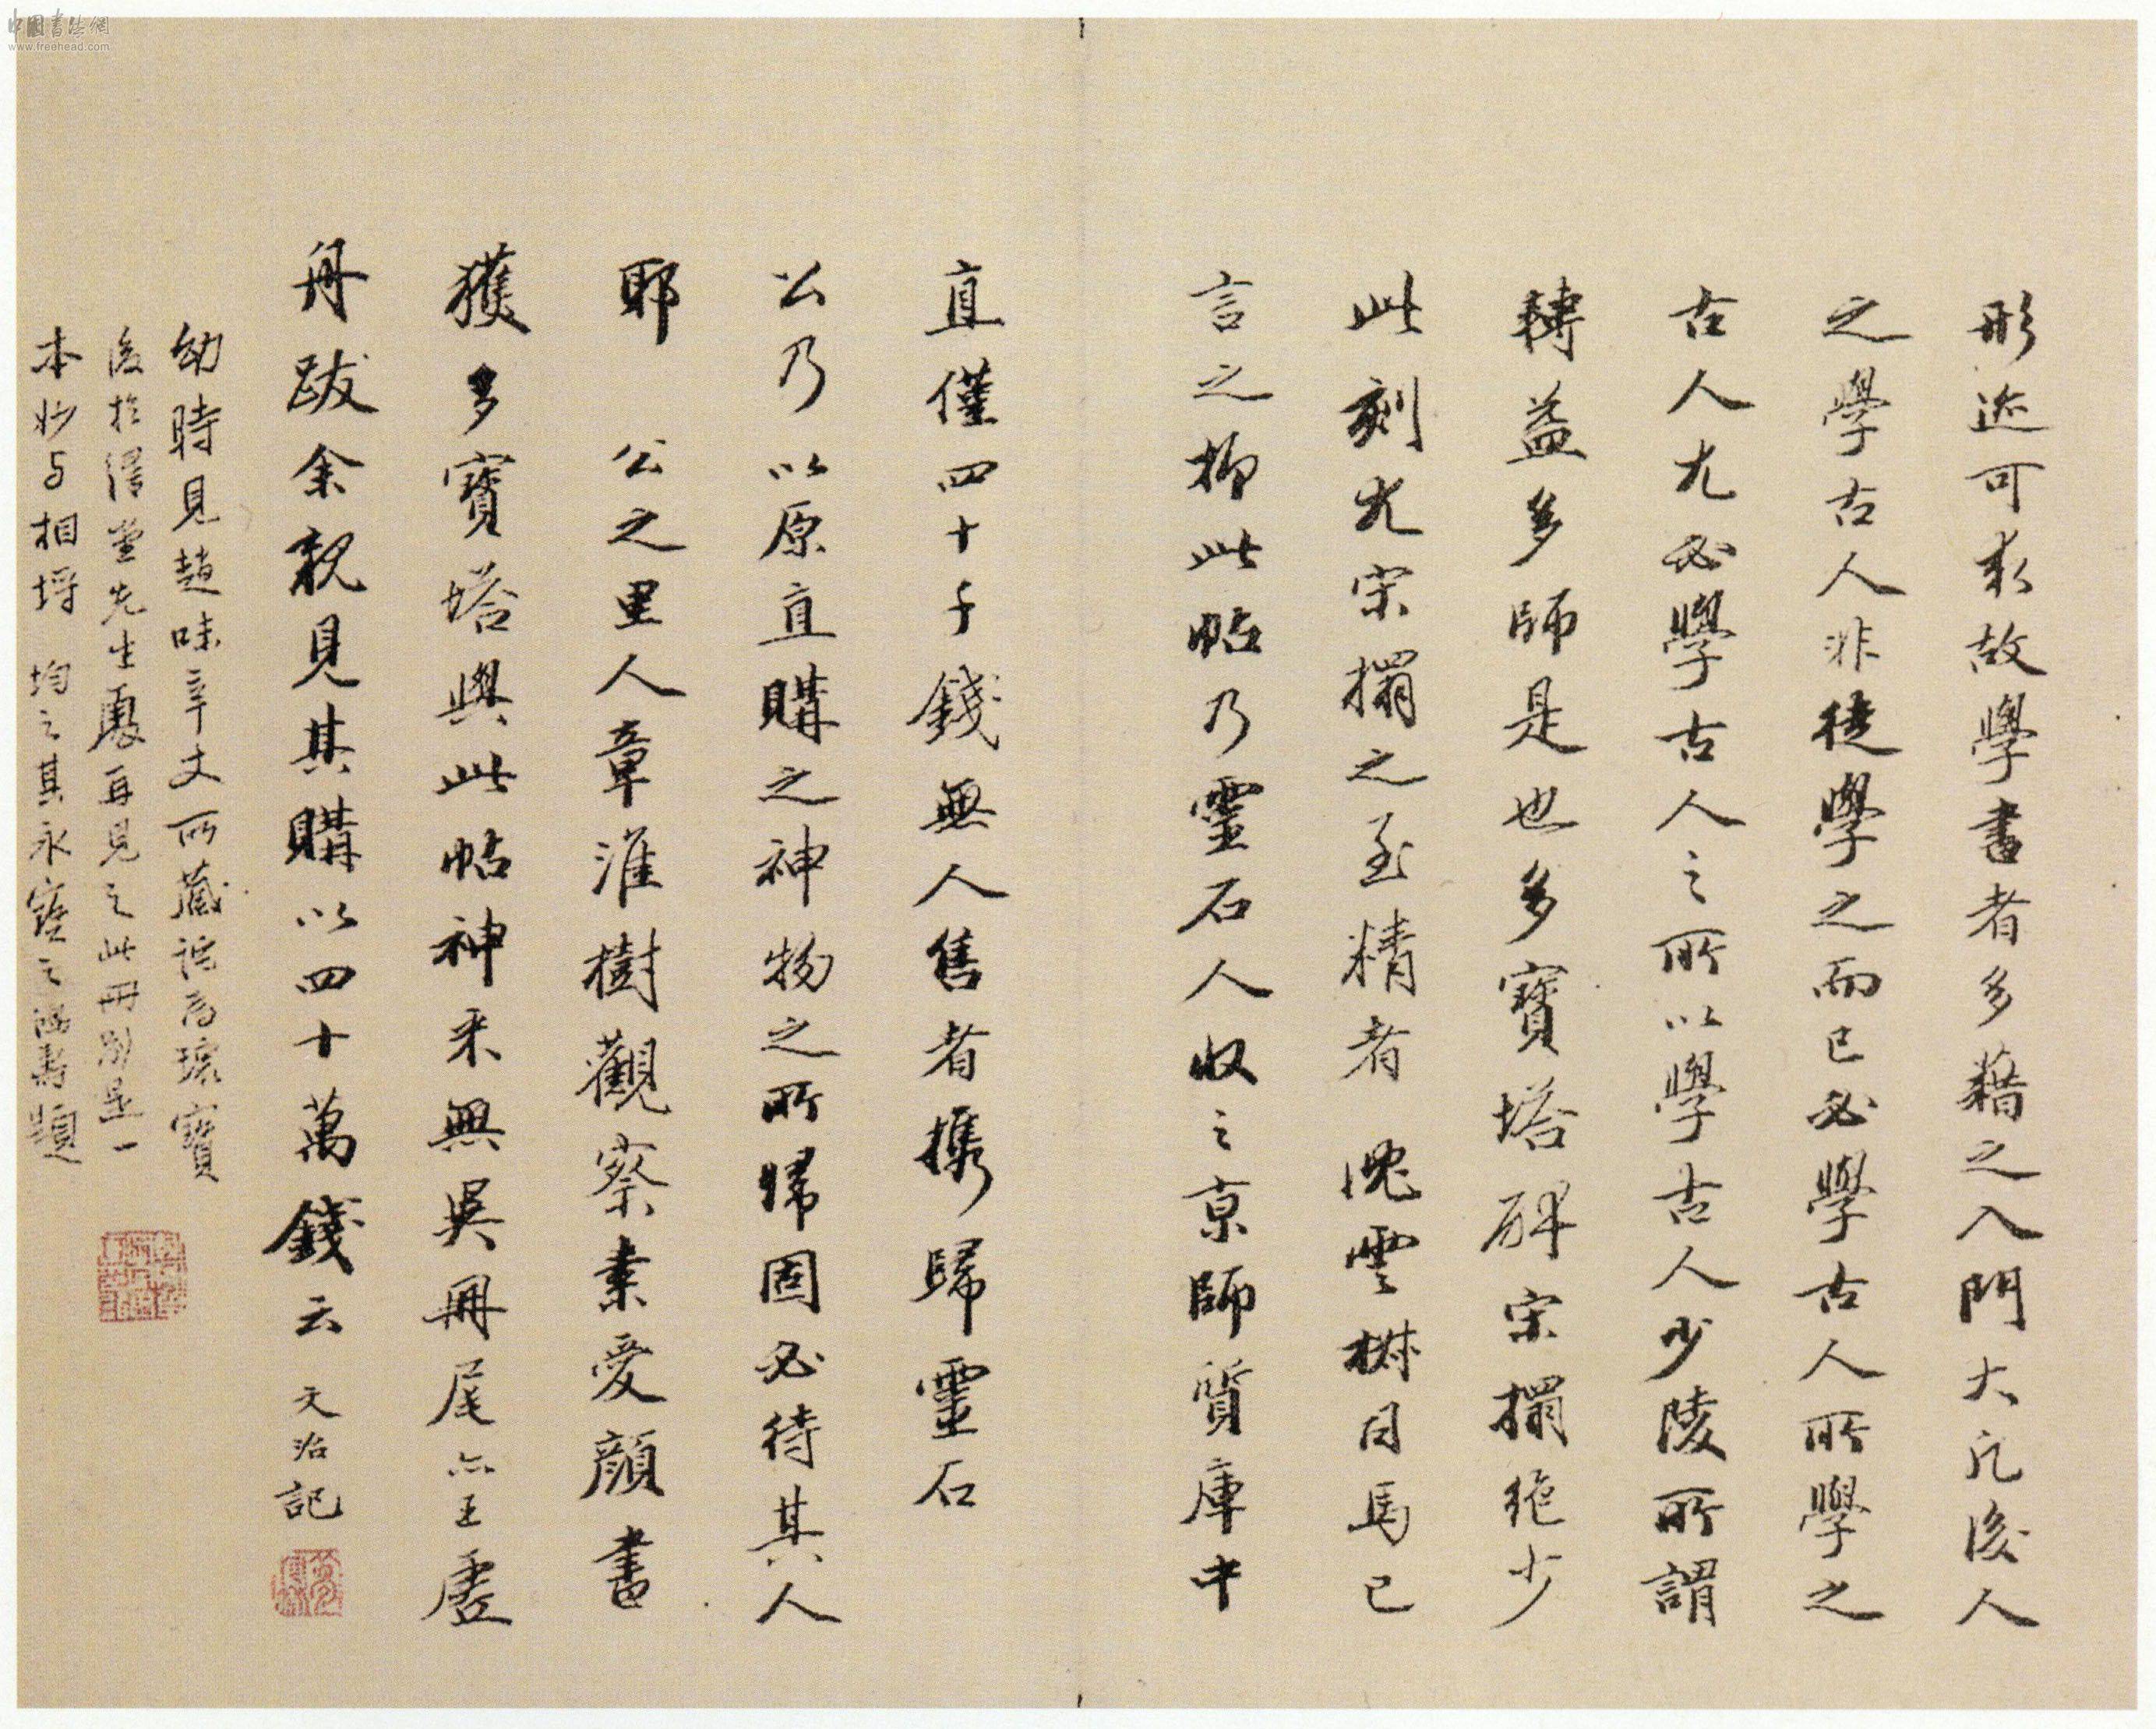 形迹可求故學書者多藉之入門大凡後人
之學古人非徒學之而已必學古人所學之
古人尤必學古人之所以學古人少陵所謂
轉益多師是也多寶塔碑宋搨絶少
此刻尤宋搨之至精者 愧雲樹司馬已
言之抑此帖乃靈石人收之京師質庫中
直僅四十千錢無人售者攜歸靈石
公乃以原直購之神物之所歸固必待其人
耶 公之里人章淮樹觀察素愛顔書
獲多寶塔與此帖神采無異冊尾亦王虛
舟跋余親見其購以四十萬錢云 文治記
幼時見趙味辛丈所藏詫為瓌寶
後於得堂先生處再見之此冊別是一
本妙与相埒 均之其永寶之 壽題
中國書法網
www.freehead.com